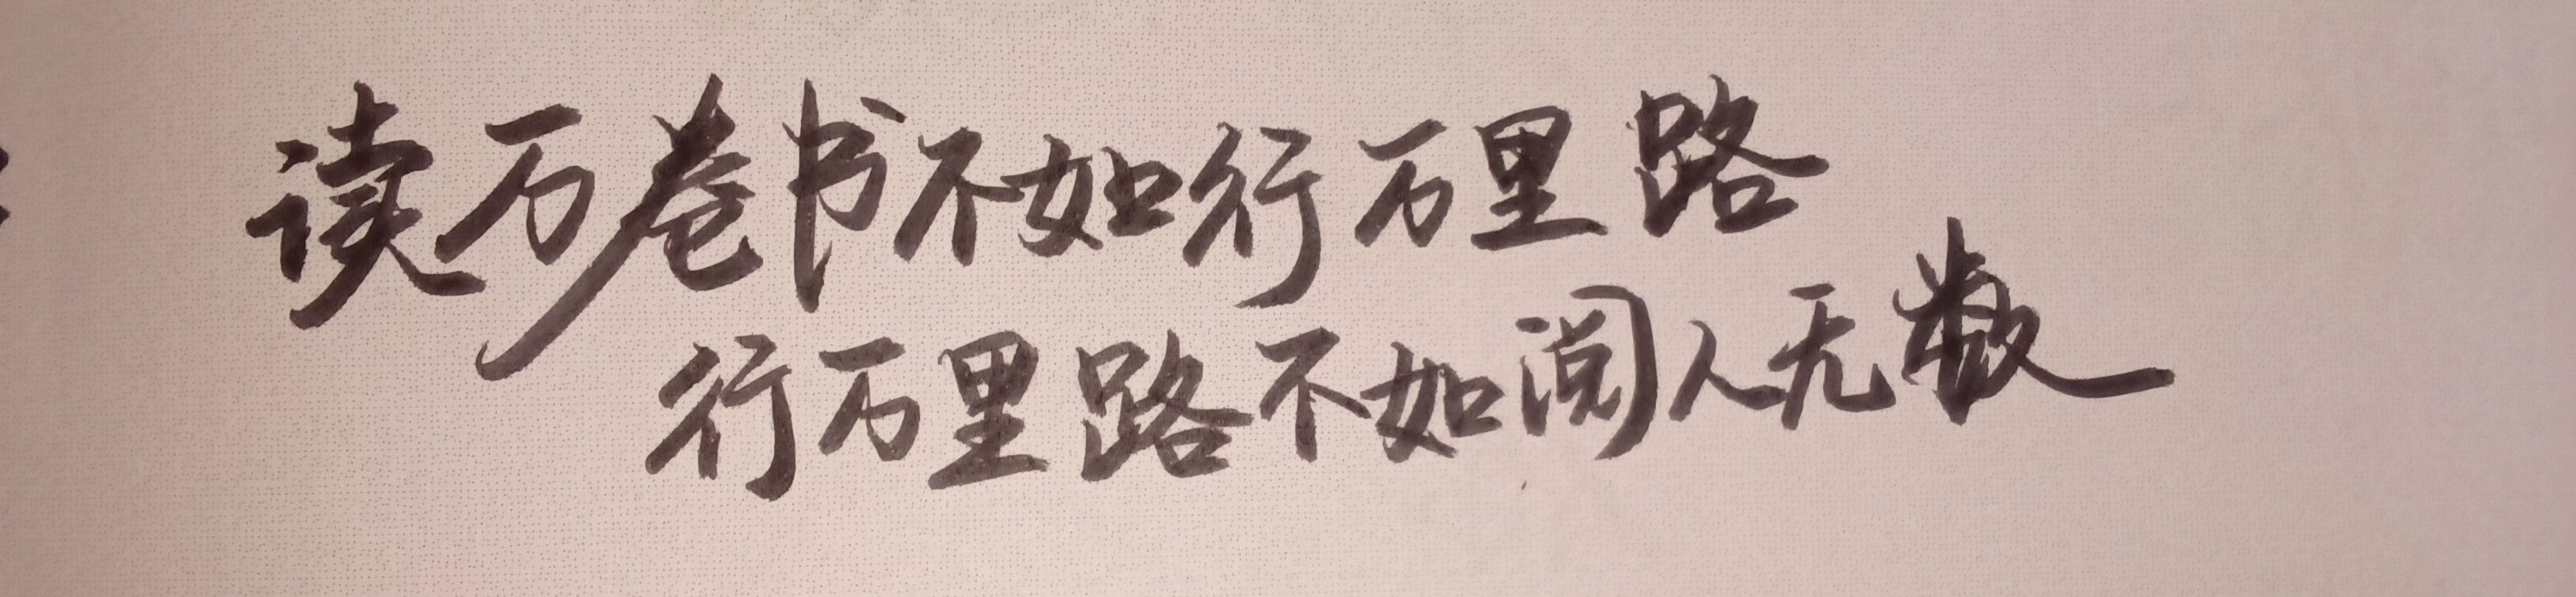 读万卷书不如行万里路
行万里路不如阅人无数